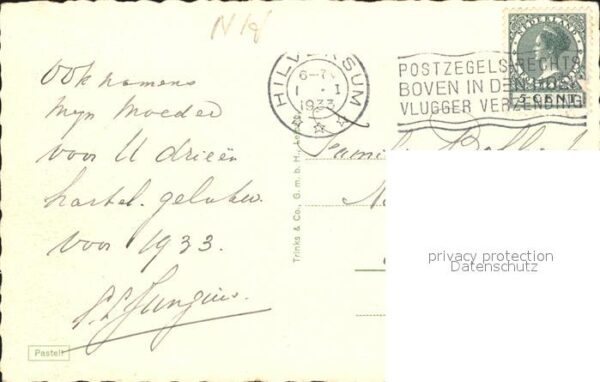 N 18
HILVERSUM
6-7V
1 . I
1933
NEDERLAND
5 CENT
POSTZEGELS RECHTS
BOVEN IN DEN HOEK
VLUGGER VERZENDING
Ook namens
Mijn Moeder
voor U drieën
hartel. gelukw.
voor 1933.
Familie
Trinks & Co., G. m. b. H., Leipzig
privacy protection
Datenschutz
Pastell